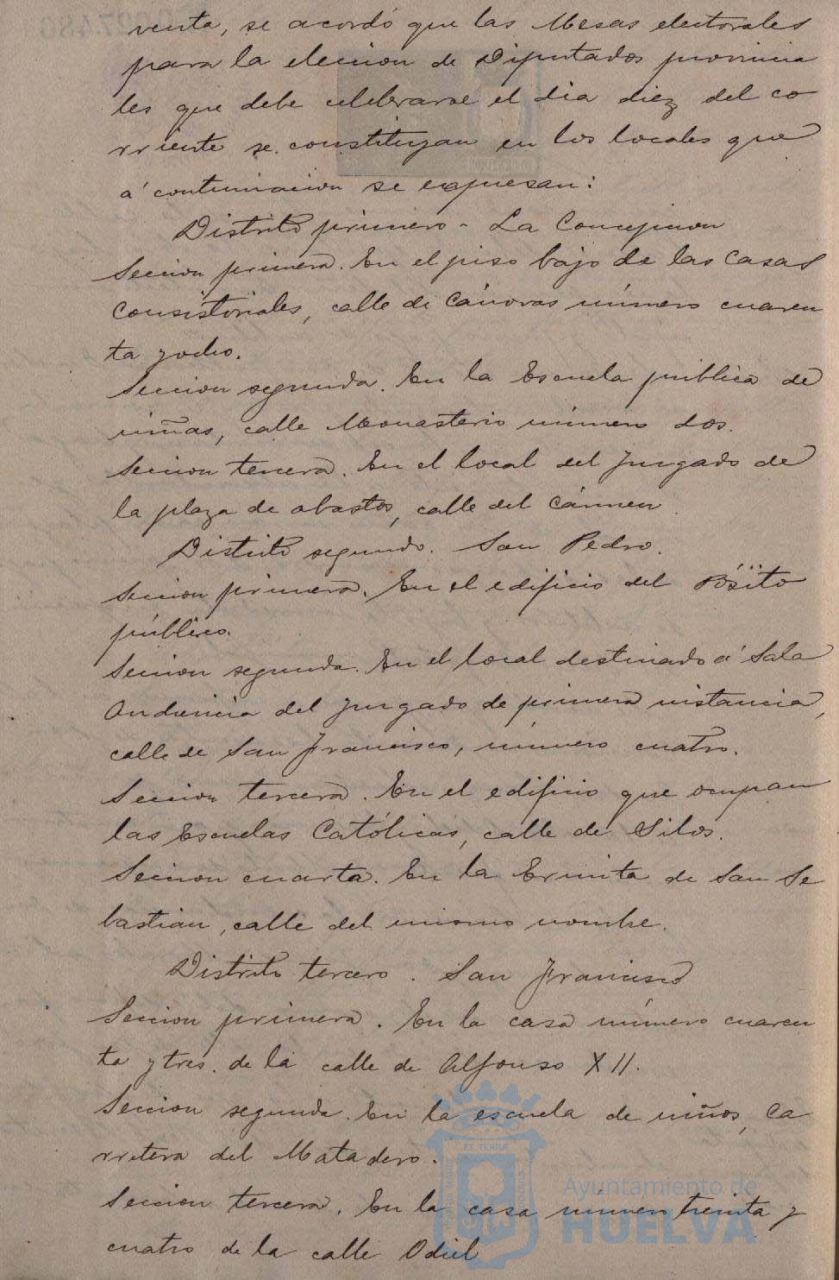 venta, se acordó que las Mesas electorales
para la eleccion de Diputados provincia
les que debe celebrarse el dia diez del co
rriente se constituyan en los locales que
á continuacion se expresan:
Distrito primero - La Concepcion
Seccion primera. En el piso bajo de las Casas
Consistoriales, calle de Cánovas número cuaren
ta y ocho.
Seccion segunda. En la Escuela pública de
niñas, calle Monasterio número dos.
Seccion tercera. En el local del Juzgado de
la plaza de abastos, calle del Cármen.
Distrito segundo. San Pedro.
Seccion primera. En el edificio del Pósito
público.
Seccion segunda. En el local destinado á Sala
Audiencia del Juzgado de primera instancia,
calle de San Francisco, número cuatro.
Seccion tercera. En el edificio que ocupan
las Escuelas Católicas, calle de Silos.
Seccion cuarta. En la Ermita de San Se
bastian, calle del mismo nombre.
Distrito tercero. San Francisco
Seccion primera. En la casa número cuaren
ta y tres de la calle de Alfonso XII.
Seccion segunda. En la escuela de niños, ca
rretera del Matadero.
Seccion tercera. En la casa número treinta y
cuatro de la calle Odiel
Ayuntamiento de
HUELVA